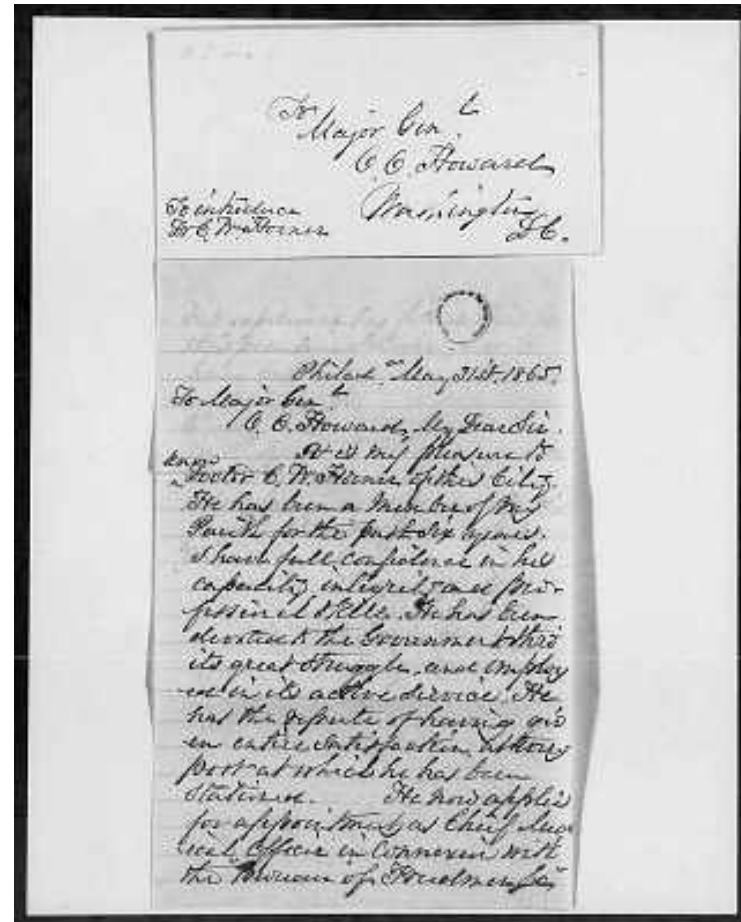 To
Major Genl
O. O. Howard
Washington
D C.
To introduce
Dr C. Wm Horner
Philada May 31st. 1865.
To Major Genl
O. O. Howard, My Dear Sir.
It is my pleasure to
know
Doctor C. W. Horner of this City.
He has been a member of my
Parish for the past six years.
I have full confidence in his
capacity, integrity and pro-
fessional skill. He has been
devoted to the Government thro
its great struggle, and employ
ed in its active service. He
has the repute of having giv
en entire satisfaction at every
post at which he has been
stationed. He now applies
for appointment as Chief Med
ical Officer in Connexion with
the Bureau of Freedmen